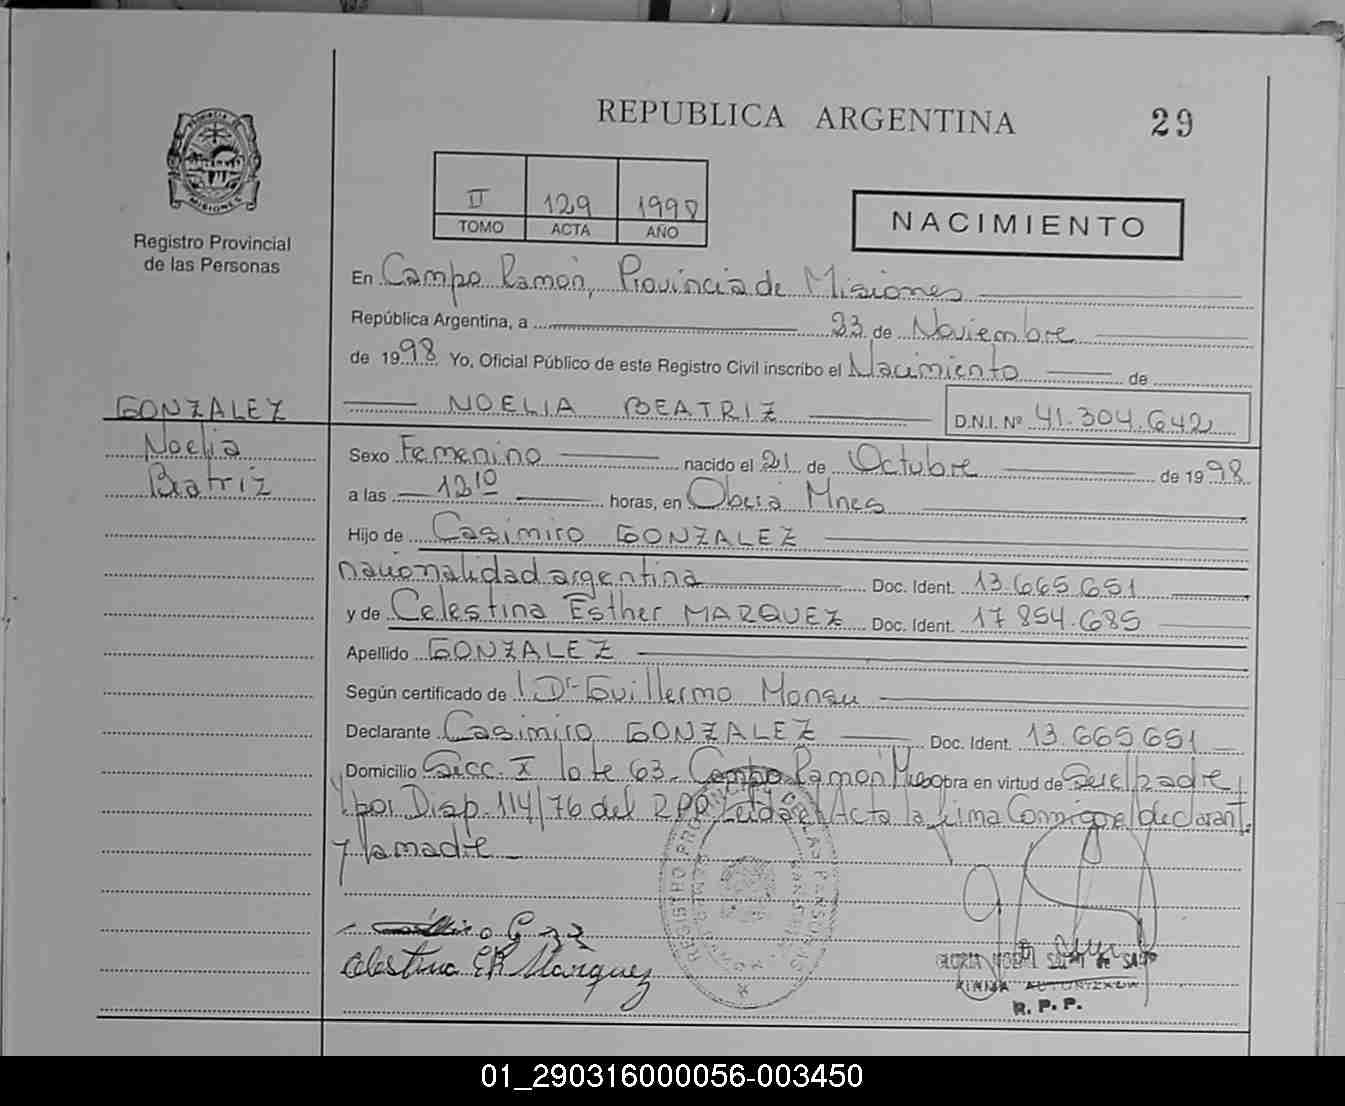 REPUBLICA ARGENTINA
29
MISIONES
Registro Provincial
de las Personas
II 129 1998
TOMO ACTA AÑO
NACIMIENTO
En Campo Ramón, Provincia de Misiones
República Argentina, a 23 de Noviembre
de 1998 Yo, Oficial Público de este Registro Civil inscribo el Nacimiento de
GONZALEZ
Noelia
Beatriz
NOELIA BEATRIZ D.N.I. Nº 41.304.642
Sexo Femenino nacido el 21 de Octubre de 1998
a las 12 10 horas, en Oberá Mnes
Hijo de Casimiro GONZALEZ
nacionalidad argentina Doc. Ident. 13.665.651
y de Celestina Esther MARQUEZ Doc. Ident. 17.854.685
Apellido GONZALEZ
Según certificado de Dr Guillermo
Declarante Casimiro GONZALEZ Doc. Ident. 13.665.651
Domicilio Secc. X lote 63 Campo Ramón Mnes obra en virtud de Ser el padre
por Disp. 114/76 del RPP Leída el Acta la firma Conmigo el declarante
y la madre
Celestina E. Marquez
REGISTRO PROVINCIAL DE LAS PERSONAS
GLORIA
R. P. P.
01_290316000056-003450